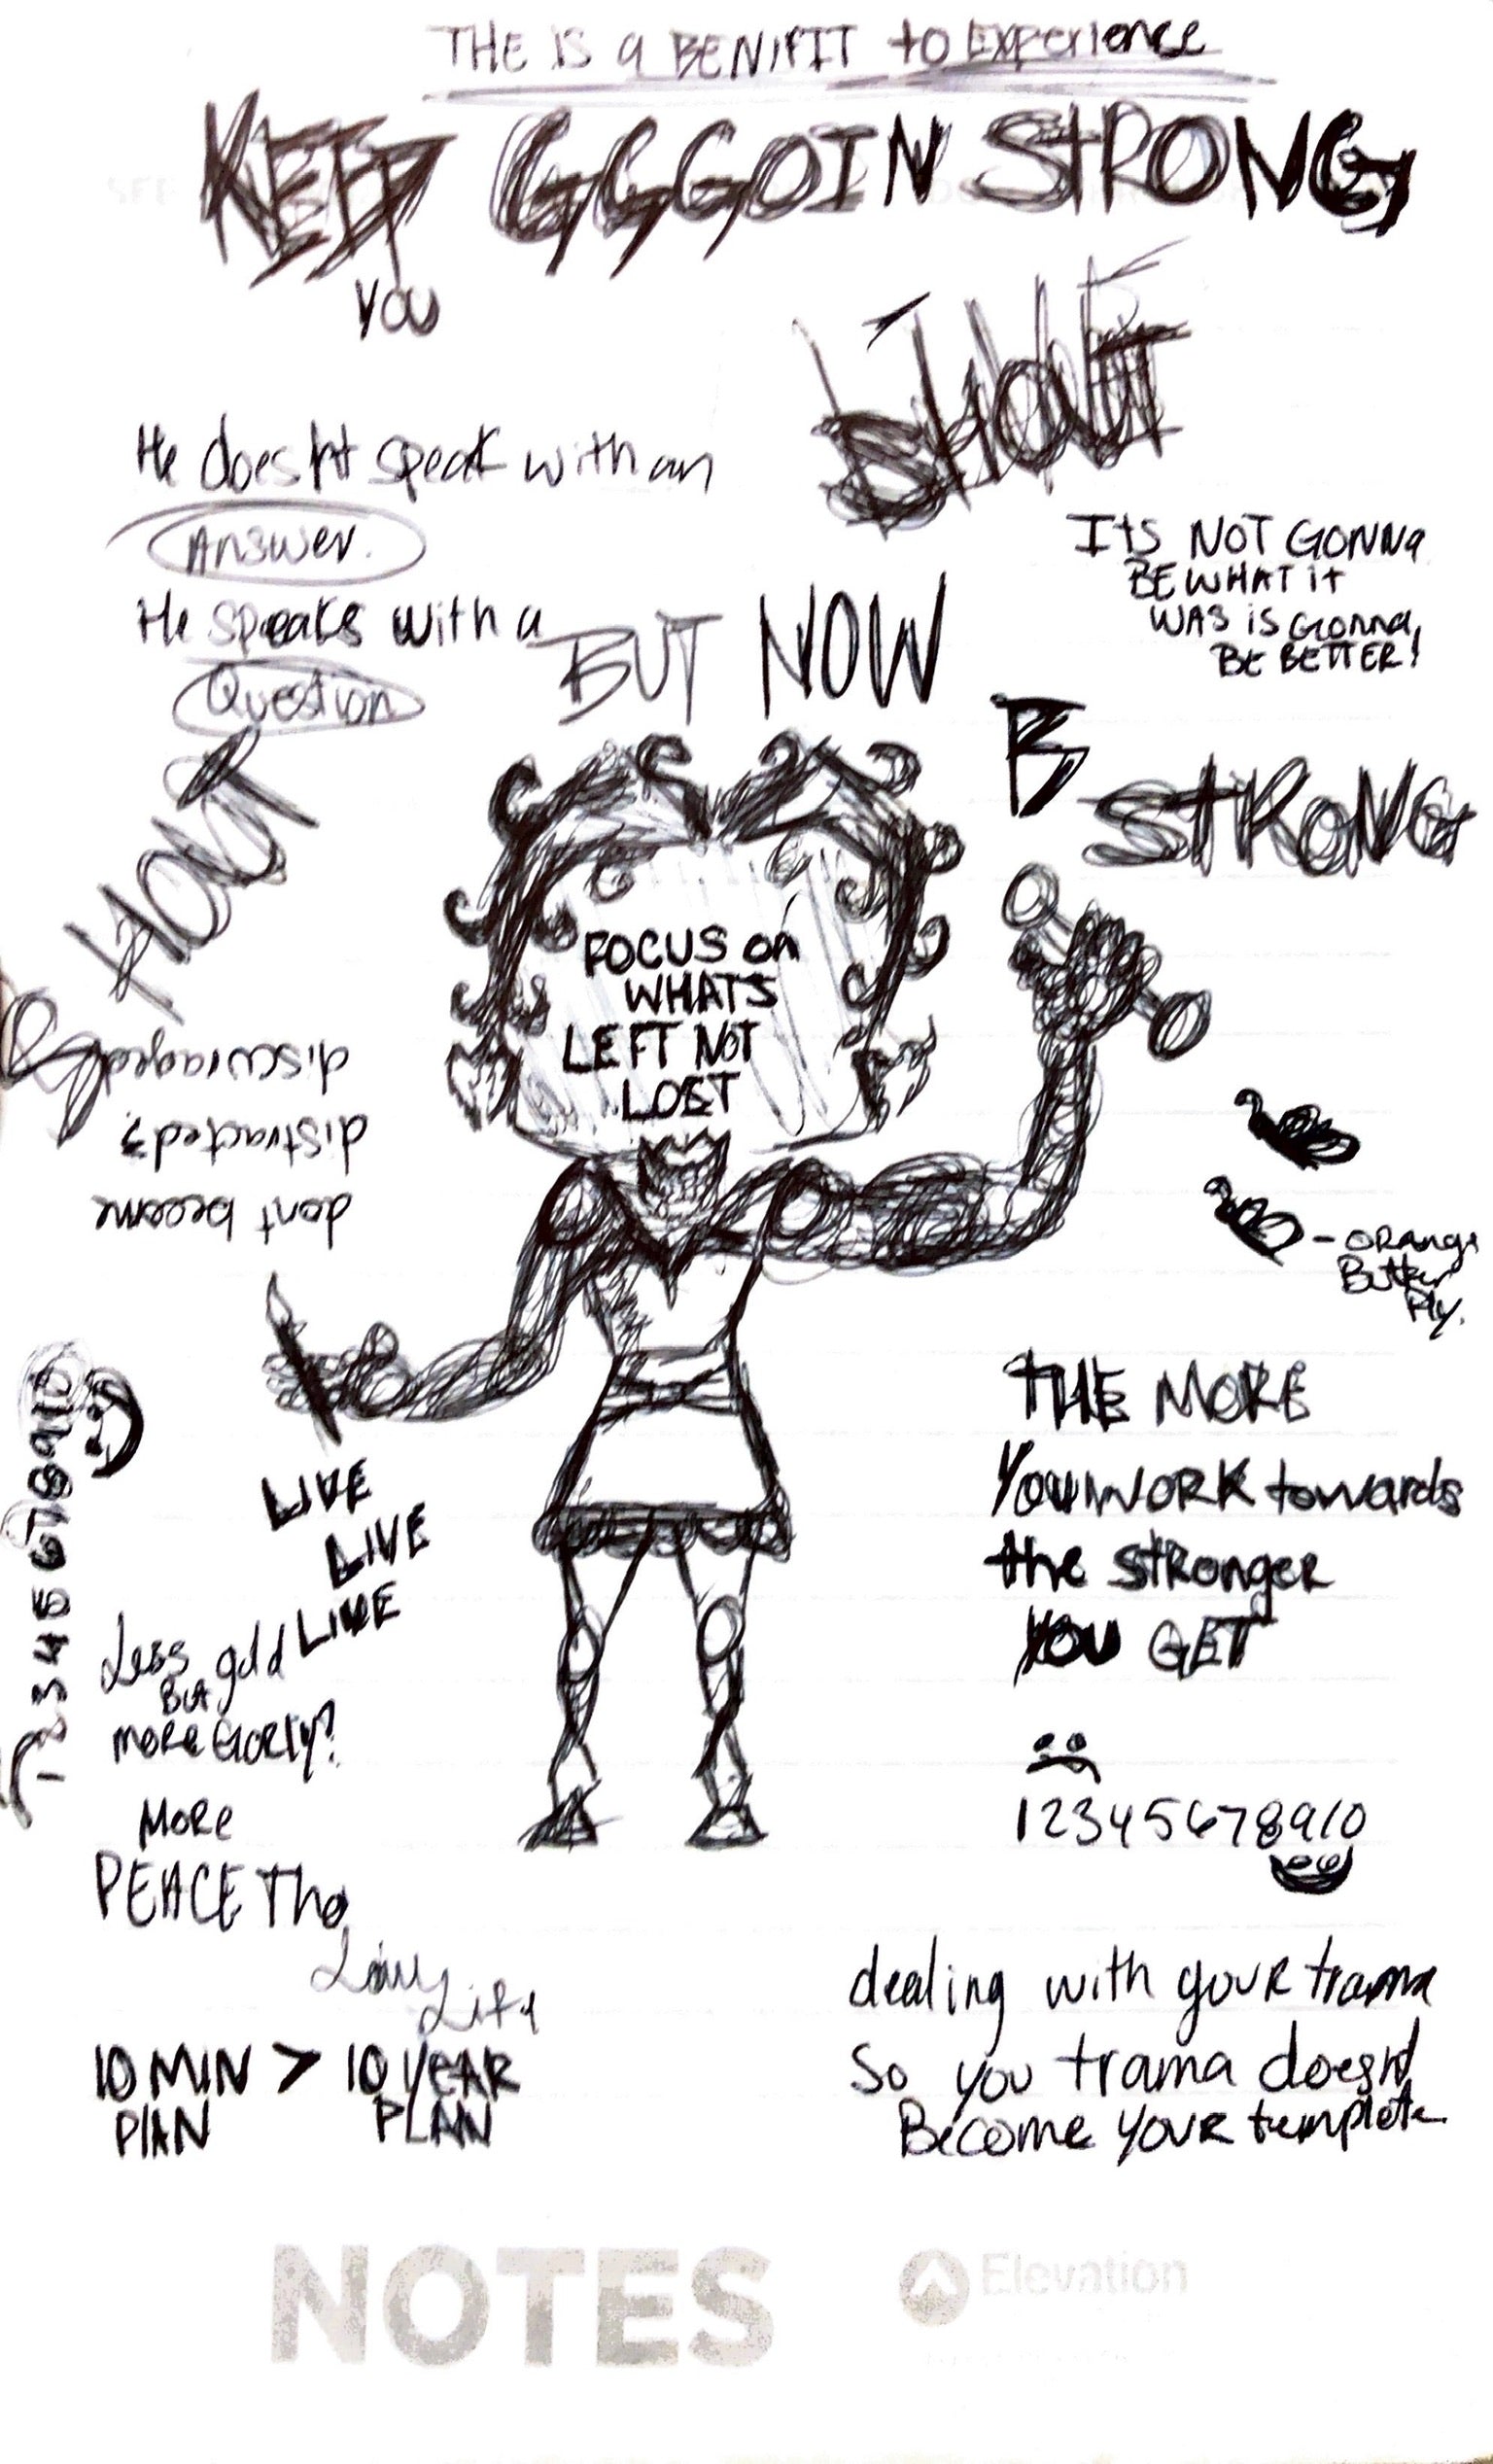 THE IS a BENIFIT to Experience
KEEP GGGOIN STRONG
YOU
SHOUT
He doesnt speak with an
Answer.
He speaks with a
Question
ItS NOT GONNa
BE WHAT it
WAS iS GONNa,
BE BETTER!
BUT NOW
B
StRONG
SHOUT
FOCUS on
WHATS
LEFT NOT
LOST
dont become
distracted?
discouraged
- ORange
Butter
Fly.
LIVE
LIVE
LIVE
THE MORE
You WORK towards
the stronger
YOU GET
1 2 3 4 5 6 7 8 9 10
Less gold
But
more Glorly?
MoRe
PEACE Tho
Life
10 MIN > 10 YEAR
PlAN PLAN
12345678910
dealing with youR trama
So you trama doesnt
Become YOUR template
NOTES
Elevation